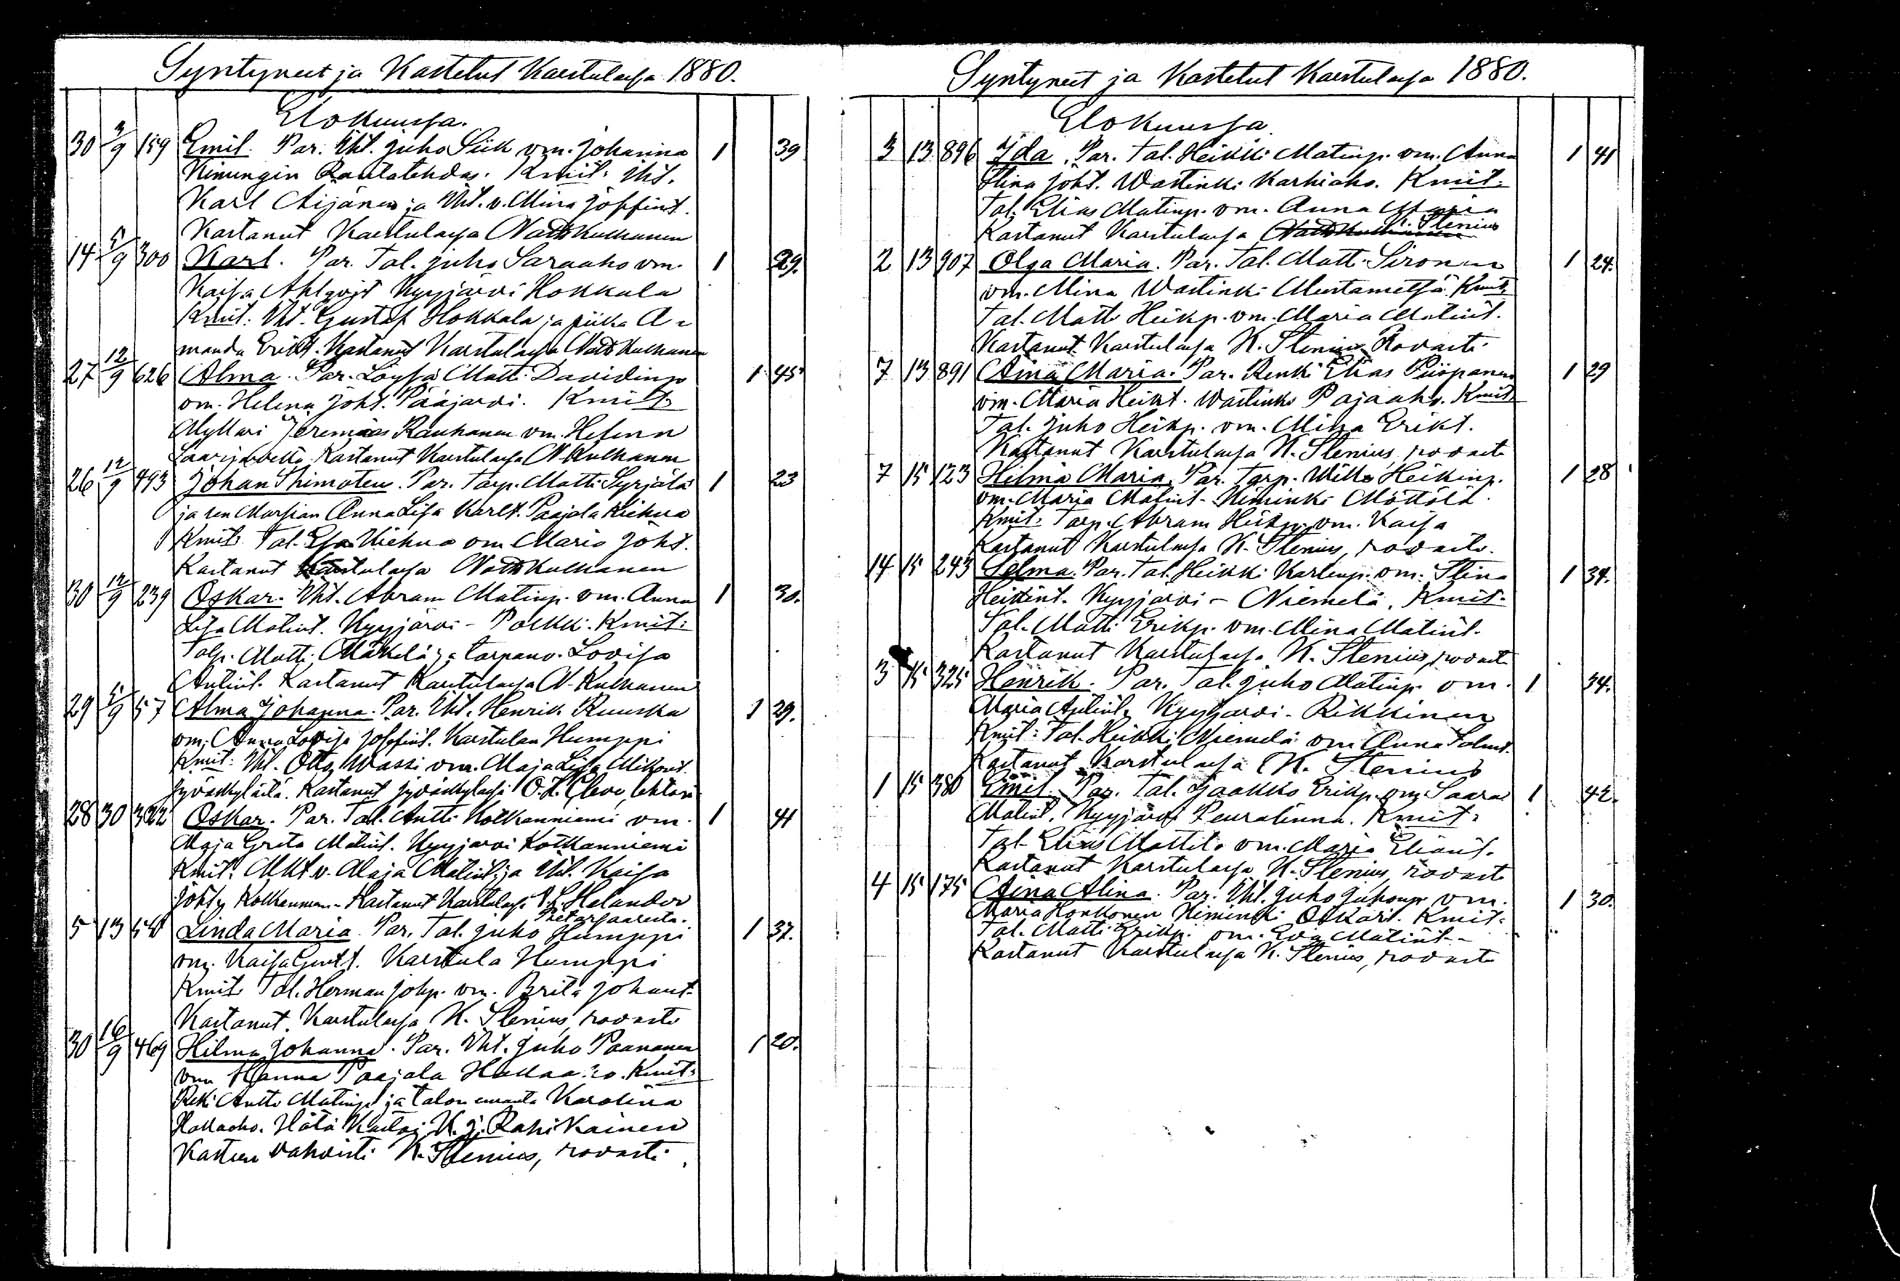 Syntyneet ja Kastetut Karstulassa 1880.
Elokuussa.
30 3/9 159 Emil. Par. Iht. Juho Siik vm. Johanna 1 39
Kimingin Rautatehdas. Kmit. Iht.
Karl Äijänen ja Iht. v. Mina Joffint.
Kastanut Karstulassa Kulhanen
14 5/9 300 Karl. Par. Tal. Juho Saraaho vm. 1 29.
Kaisa Ahlqvist Kyyjärvi Hokkala
Kmit. Iht. Gustaf Hokkala ja piika A-
manda Erikst. Kastanut Karstulassa Kulhanen
27 12/9 626 Alma. Par. Loysä Matti Davidinp 1 45
vm. Helena Joht. Pääjärvi. Kmit.
Mylläri Jeremias Kauhanen vm. Helena
Saarijärveltä. Kastanut Karstulassa N. Kulhanen
26 12/9 493 Johan Thimoteu. Par. Torp. Matti Syrjälä 1 23
ja sen Morsian Anna Lisa Karlt. Paajala Kiehua
Kmit. Tal. Esa Kiehua vm Maria Joht.
Kastanut Karstulassa Kulhanen
30 12/9 239 Oskar. Iht. Abram Matinp. vm. Anna 1 30.
Lisa Matint. Kyyjärvi - Poikki. Kmit:
Talp. Matti Mäkelä ja torpanv. Lovisa
Antint. Kastanut Karstulassa N. Kulhanen
29 5/9 57 Alma Johanna. Par. Iht. Henrik Ruuska 1 29.
vm. Anna Lovisa Josefint. Karstulan Humppi
Kmit: Iht. Otto Wassi vm. Maja Lisa Mikont.
Jyväskylästä. Kastanut Jyväskylässä O. Z. Cleve, lehtori
28 30 322 Oskar. Par. Tal. Antti Kotkanniemi vm. 1 41
Maja Greta Matint. Kyyjärvi Kotkanniemi
Kmit: Mkt v. Maja Matint ja Iht. Kaisa
Joht. Kastanut Karstulassa Helander
Pietarsaaresta.
5 13 54 Linda Maria. Par. Tal. Juho Humppi 1 37.
vm. Kaisa Gustt. Karstula Humppi
Kmit Tal. Herman Johp. vm. Brita Johant
Kastanut Karstulassa K. Stenius, rovasti
30 16/9 469 Hilma Johanna. Par. Iht. Juho Paananen 1 20.
vm Hanna Paajala Kmit.
Reki Antti Matinp ja talon emäntä Karolina
Hätä Kastoi K. J. Rahikainen
Kasteen vahvisti K. Stenius, rovasti.
Syntyneet ja Kastetut Karstulassa 1880.
Elokuussa.
3 13 896 Ida. Par. Tal. Heikki Matinp. vm. Anna 1 41
Stina Joht. Wastinki Karhiaho. Kmit.
Tal. Elias Matinp. vm. Anna Maria
Kastanut Karstulassa K. Stenius
2 13 907 Olga Maria. Par. Tal. Matti Sironen 1 24.
vm. Mina Wastinki Mustametsä Kmit.
Tal. Matti Heikp. vm. Maria Matint.
Kastanut Karstulassa K. Stenius Rovasti
7 13 891 Aina Maria. Par. Renki Elias Piispanen 1 29
vm. Maria Heikt. Wastinki Pajaaho. Kmit
Tal. Juho Heikp. vm. Mina Erikt.
Kastanut Karstulassa K. Stenius, rovasti
7 15 123 Hilma Maria. Par. Torp. Wille Heikinp. 1 28
vm. Maria Matint. Kiminki Möttölä.
Kmit: Torp. Abram Heikp. vm. Kaisa
Kastanut Karstulassa K. Stenius, rovasti.
14 15 243 Selma. Par. Tal. Heikki Karlinp. vm. Stina 1 34.
Heikint. Kyyjärvi - Niemelä. Kmit.
Tal. Matti Erikp. vm. Mina Matint.
Kastanut Karstulassa K. Stenius, rovasti
3 15 325 Henrik. Par. Tal. Juho Matinp. vm. 1 34.
Maria Antint. Kyyjärvi - Rikkinen
Kmit: Tal. Heikki Niemelä vm Anna Salmt.
Kastanut Karstulassa K. Stenius
1 15 380 Emil. Par. Tal. Jaakko Erikp. vm. Saara 1 42.
Matint. Kyyjärvi Peuralinna. Kmit:
Tal. Elias Mattila vm. Maria Eliant.
Kastanut Karstulassa K. Stenius, rovasti
4 15 175 Aina Alina. Par. Iht. Juho Juhonp. vm. 1 30.
Maria Honkonen Kiminki Oskari. Kmit.
Tal. Matti Erikp. vm. Eva Matint.
Kastanut Karstulassa K. Stenius, rovasti